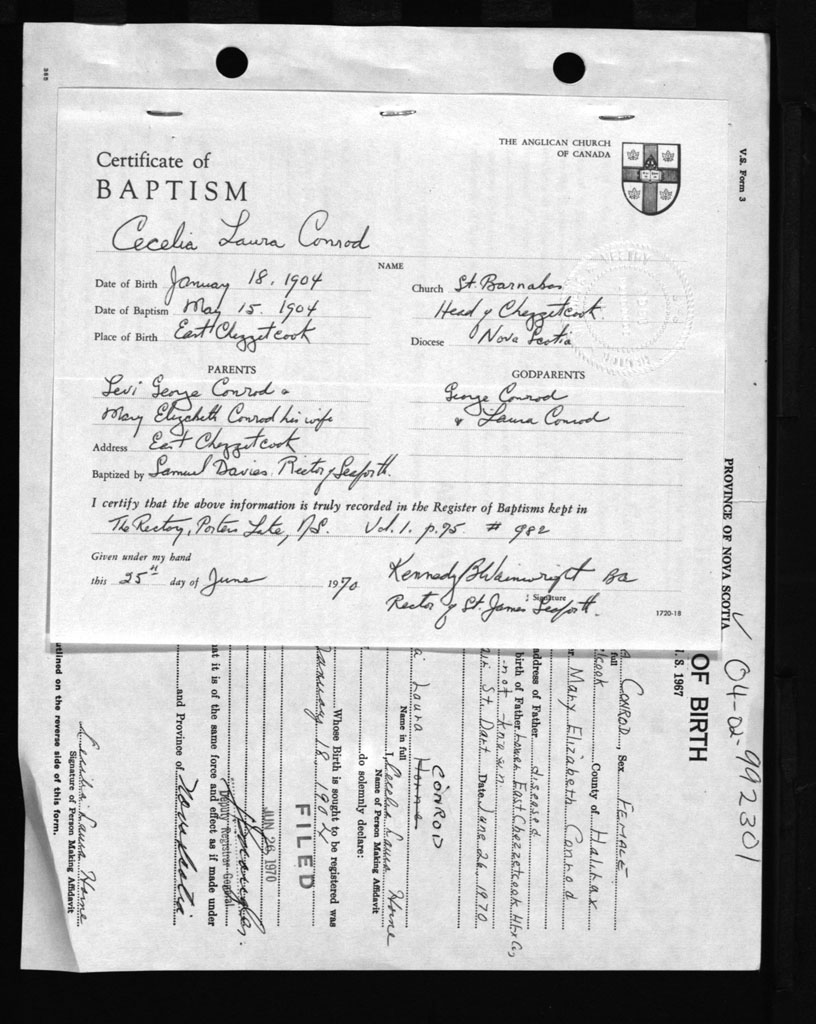 385
V.S. Form 3
THE ANGLICAN CHURCH
OF CANADA
Certificate of
BAPTISM
Cecelia Laura Conrod
NAME
Date of Birth January 18, 1904
Church St. Barnabas
Date of Baptism May 15, 1904
Head of Chezzetcook
Place of Birth East Chezzetcook
Diocese Nova Scotia
PARENTS
GODPARENTS
Levi George Conrod &
George Conrod
Mary Elizabeth Conrod his wife
& Laura Conrod
Address East Chezzetcook
Baptized by Samuel Davies. Rector of Seaforth.
I certify that the above information is truly recorded in the Register of Baptisms kept in
The Rectory, Porters Lake, N.S. Vol. 1. p.95 # 982
Given under my hand
this 25th day of June 1970
Kennedy B Wainwright BA
Signature
Rector of St. James Seaforth.
1720-18
PROVINCE OF NOVA SCOTIA
04-02-992301
OF BIRTH
S. 1967
full CONROD, Sex FEMALE
cook County of Halifax
Mary Elizabeth Conrod
address of Father diseased
birth of Father Lower East Chezzetcook Hfx Co,
not known.
St. Dart Date June 26, 1970
CONROD
Laura Horne
Name in full
I, Cecelia Laura Horne
Name of Person Making Affidavit
do solemnly declare:
Whose Birth is sought to be registered was
January 18, 1904
FILED
JUN 26 1970
Deputy Registrar General
at it is of the same force and effect as if made under
and Province of Nova Scotia
Cecelia Laura Horne
Signature of Person Making Affidavit
utlined on the reverse side of this form.